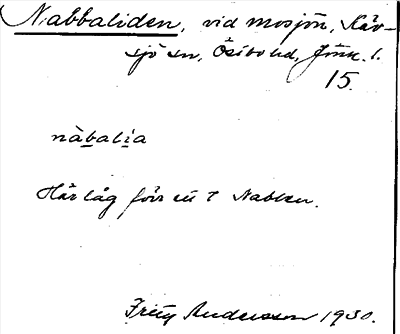 Nabbaliden, vid mosjön, Käv-
sjö sn, Östbo hd, Jönk. l.
15.
nàbalia
Här låg förr ett t Nabben.
Fritz Andersson 1930.